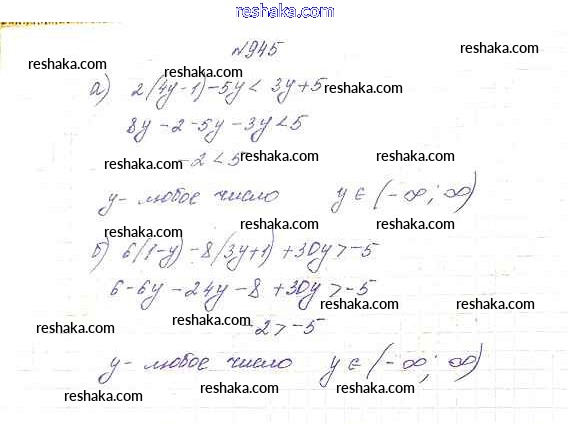 reshaka.com
№945
reshaka.com reshaka.com reshaka.com
а) 2(4y-1)-5y < 3y+5
reshaka.com
8y-2-5y-3y<5
reshaka.com reshaka.com
reshaka.com -2<5 reshaka.com
y- любое число y∈(-∞; ∞)
reshaka.com reshaka.com reshaka.com
б) 6(1-y)-8(3y+1)+30y>-5
reshaka.com reshaka.com
6-6y-24y-8+30y>-5
reshaka.com reshaka.com reshaka.com
-2>-5
y- любое число y∈(-∞; ∞)
reshaka.com reshaka.com reshaka.com